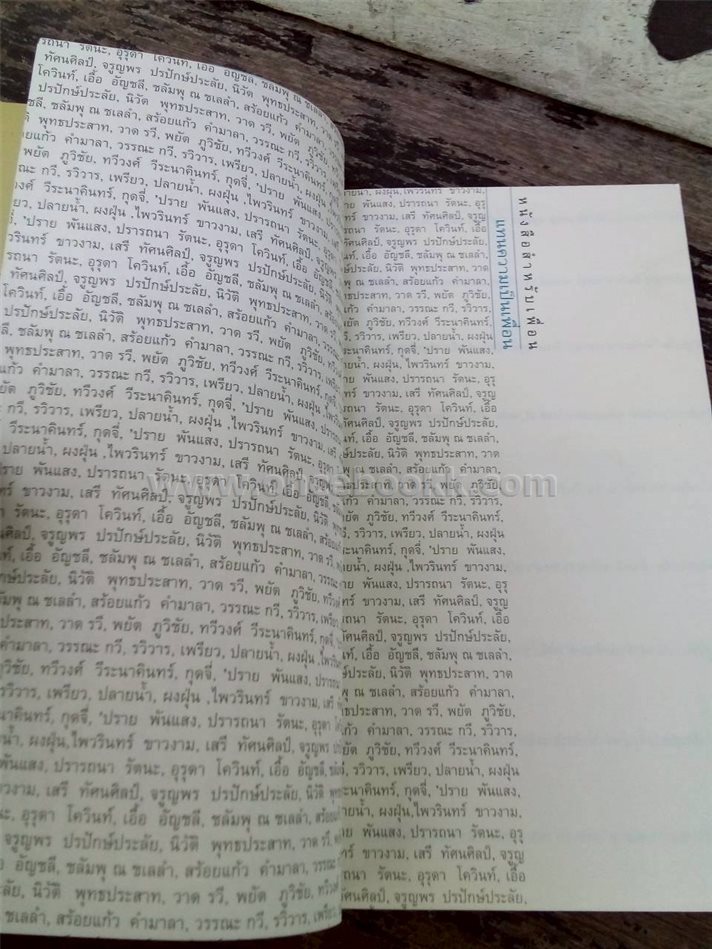 รถนา รัตนะ, อุรุดา โควินท์, เอื้อ อัญชลี, ชลัมพุ ณ ชเลลำ
ทัศนศิลป์, จรูญพร ปรปักษ์ประลัย, นิวัติ พุทธประสาท,
โควินท์, เอื้อ อัญชลี, ชลัมพุ ณ ชเลลำ, สร้อยแก้ว คำมาลา,
ปรปักษ์ประลัย, นิวัติ พุทธประสาท, วาด รวี,
ชลี, ชลัมพุ ณ ชเลลำ, สร้อยแก้ว คำมาลา, วรรณะ กวี,
พุทธประสาท, วาด รวี, พยัต ภูวิชัย, ทวีวงศ์
แก้ว คำมาลา, วรรณะ กวี, รวิวาร, เพรียว, ปลายน้ำ,
พยัต ภูวิชัย, ทวีวงศ์ วีระนาคินทร์, กุดจี่,
กวี, รวิวาร, เพรียว, ปลายน้ำ, ผงฝุ่น ,ไพวรินทร์
วงศ์ วีระนาคินทร์, กุดจี่, 'ปราย พันแสง, ปรารถนา
ว, ปลายน้ำ, ผงฝุ่น ,ไพวรินทร์ ขาวงาม, เสรี
'ปราย พันแสง, ปรารถนา รัตนะ, อุรุดา
วรินทร์ ขาวงาม, เสรี ทัศนศิลป์, จรูญพร ปรปักษ์ประลัย,
รถนา รัตนะ, อุรุดา โควินท์, เอื้อ อัญชลี,
ทัศนศิลป์, จรูญพร ปรปักษ์ประลัย, นิวัติ พุทธประสาท,
โควินท์, เอื้อ อัญชลี, ชลัมพุ ณ ชเลลำ, สร้อยแก้ว
ปรปักษ์ประลัย, นิวัติ พุทธประสาท, วาด รวี,
ลี, ชลัมพุ ณ ชเลลำ, สร้อยแก้ว คำมาลา, วรรณะ กวี,
พุทธประสาท, วาด รวี, พยัต ภูวิชัย, ทวีวงศ์
แก้ว คำมาลา, วรรณะ กวี, รวิวาร, เพรียว, ปลายน้ำ,
ภูวิชัย, ทวีวงศ์ วีระนาคินทร์, กุดจี่, 'ปราย
กวี, รวิวาร, เพรียว, ปลายน้ำ, ผงฝุ่น ,ไพวรินทร์
วีระนาคินทร์, กุดจี่, 'ปราย พันแสง, ปรารถนา
ปลายน้ำ, ผงฝุ่น ,ไพวรินทร์ ขาวงาม, เสรี ทัศนศิลป์,
ราย พันแสง, ปรารถนา รัตนะ, อุรุดา
ทร์ ขาวงาม, เสรี ทัศนศิลป์, จรูญพร
รัตนะ, อุรุดา โควินท์, เอื้อ อัญชลี,
จรูญพร ปรปักษ์ประลัย, นิวัติ
เอื้อ อัญชลี, ชลัมพุ ณ ชเลลำ, สร้อยแก้ว
นิวัติ พุทธประสาท, วาด รวี,
ณ ชเลลำ, สร้อยแก้ว คำมาลา, วรรณะ
วาด รวี, พยัต ภูวิชัย, ทวีวงศ์
คำมาลา, วรรณะ กวี, รวิวาร, เพรียว, ปลายน้ำ,
ทวีวงศ์ วีระนาคินทร์, กุดจี่, 'ปราย
รวิวาร, เพรียว, ปลายน้ำ, ผงฝุ่น ,ไพวรินทร์ ขาวงาม,
กุดจี่, 'ปราย พันแสง, ปรารถนา รัตนะ, อุรุดา
ผงฝุ่น,ไพวรินทร์ ขาวงาม, เสรี ทัศนศิลป์, จรูญพร
พันแสง, ปรารถนา รัตนะ, อุรุดา โควินท์, เอื้อ อัญชลี,
เสรี ทัศนศิลป์, จรูญพร ปรปักษ์ประลัย, นิวัติ
อุรุดา โควินท์, เอื้อ อัญชลี, ชลัมพุ ณ ชเลลำ,
จรูญพร ปรปักษ์ประลัย, นิวัติ พุทธประสาท, วาด รวี,
อัญชลี, ชลัมพุ ณ ชเลลำ, สร้อยแก้ว คำมาลา, วรรณะ
นิวัติ พุทธประสาท, วาด รวี, พยัต ภูวิชัย,
ชเลลำ, สร้อยแก้ว คำมาลา, วรรณะ กวี, รวิวาร,
หนังสือสำหรับเพื่อน
แทนความเป็นเพื่อน
ผงฝุ่น,ไพวรินทร์ ขาวงาม,
พันแสง, ปรารถนา รัตนะ, อุรุ
ขาวงาม, เสรี ทัศนศิลป์, จรูญ
รัตนะ, อุรุดา โควินท์, เอื้อ
จรูญพร ปรปักษ์ประลัย,
เอื้อ อัญชลี, ชลัมพุ ณ ชเลลำ,
นิวัติ พุทธประสาท, วาด
ณ ชเลลำ, สร้อยแก้ว คำมาลา,
วาด รวี, พยัต ภูวิชัย,
คำมาลา, วรรณะ กวี, รวิวาร,
ภูวิชัย, ทวีวงศ์ วีระนาคินทร์,
รวิวาร, เพรียว, ปลายน้ำ,
กุดจี่, 'ปราย พันแสง,
ผงฝุ่น ,ไพวรินทร์ ขาวงาม,
พันแสง, ปรารถนา รัตนะ, อุรุ
ขาวงาม, เสรี ทัศนศิลป์, จรูญ
รัตนะ, อุรุดา โควินท์, เอื้อ
จรูญพร ปรปักษ์ประลัย,
เอื้อ อัญชลี, ชลัมพุ ณ ชเลลำ,
นิวัติ พุทธประสาท, วาด
ณ ชเลลำ, สร้อยแก้ว คำมาลา,
วาด รวี, พยัต ภูวิชัย,
คำมาลา, วรรณะ กวี, รวิวาร,
ภูวิชัย, ทวีวงศ์ วีระนาคินทร์,
รวิวาร, เพรียว, ปลายน้ำ,
กุดจี่, 'ปราย พันแสง,
ผงฝุ่น ,ไพวรินทร์ ขาวงาม,
พันแสง, ปรารถนา รัตนะ, อุรุ
ขาวงาม, เสรี ทัศนศิลป์, จรูญ
รัตนะ, อุรุดา โควินท์, เอื้อ
จรูญพร ปรปักษ์ประลัย,
เอื้อ อัญชลี, ชลัมพุ ณ ชเลลำ,
นิวัติ พุทธประสาท, วาด
ณ ชเลลำ, สร้อยแก้ว คำมาลา,
วาด รวี, พยัต ภูวิชัย,
คำมาลา, วรรณะ กวี, รวิวาร,
ภูวิชัย, ทวีวงศ์ วีระนาคินทร์,
รวิวาร, เพรียว, ปลายน้ำ,
กุดจี่, 'ปราย พันแสง,
ผงฝุ่น,ไพวรินทร์ ขาวงาม,
พันแสง, ปรารถนา รัตนะ, อุรุ
ขาวงาม, เสรี ทัศนศิลป์, จรูญ
รัตนะ, อุรุดา โควินท์, เอื้อ
จรูญพร ปรปักษ์ประลัย,